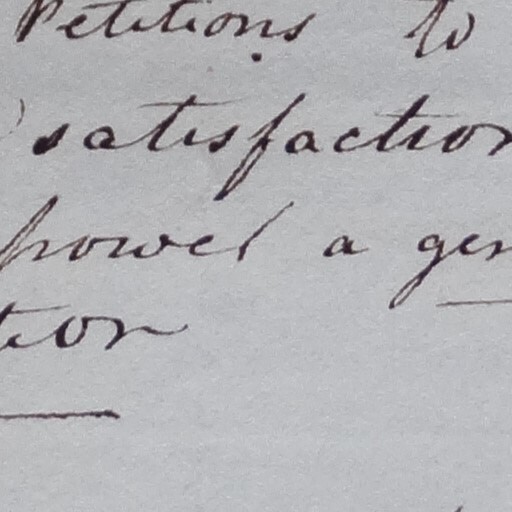 Petitions to
satisfaction
power a gen
tion